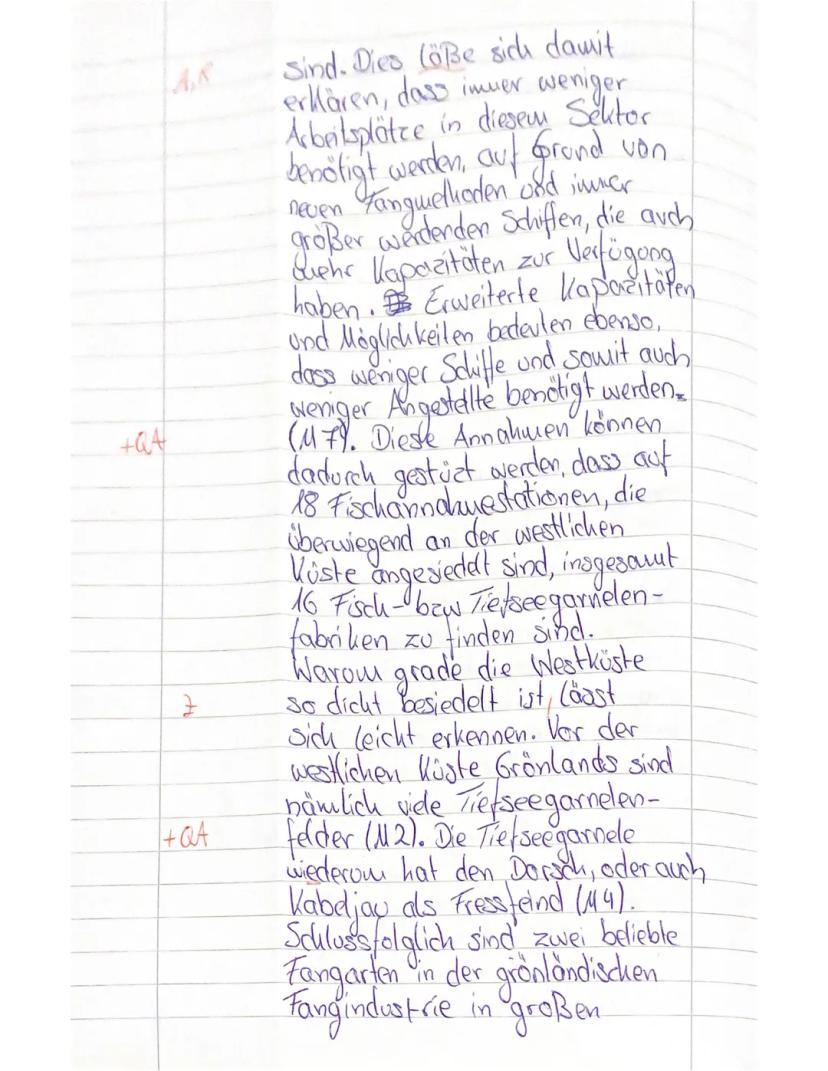 A, R
sind. Dies läße sich damit
erklären, dass immer weniger
Arbeitsplätze in diesem Sektor
benötigt werden, auf Grund von
neuen Fangmethoden und immer
größer werdenden Schiffen, die auch
mehr Kapazitäten zur Verfügung
haben. Erweiterte Kapazitäten
und Möglichkeiten bedeuten ebenso,
dass weniger Schiffe und somit auch
weniger Angestellte benötigt werden
+QA
(M7). Diese Annahmen können
dadurch gestüzt werden, dass auf
18 Fischannahmestationen, die
überwiegend an der westlichen
Küste angesiedelt sind, insgesamt
16 Fisch- bzw Tiefseegarnelen-
fabriken zu finden sind.
Warum grade die Westküste
Z
so dicht besiedelt ist, lässt
sich leicht erkennen. Vor der
westlichen Küste Grönlands sind
nämlich viele Tiefseegarnelen-
+QA
felder (M2). Die Tiefseegarnele
wiederum hat den Dorsch, oder auch
Kabeljau als Fressfeind (M4).
Schlussfolglich sind zwei beliebte
Fangarten in der grönländischen
Fangindustrie in großen